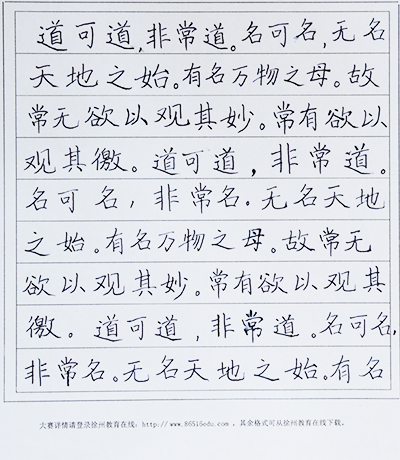 道可道,非常道。名可名,无名
天地之始。有名万物之母。故
常无欲以观其妙。常有欲以
观其徼。道可道,非常道。
名可名,非常名.无名天地
之始。有名万物之母。故常无
欲以观其妙。常有欲以观其
徼。道可道,非常道。名可名,
非常名。无名天地之始。有名
大赛详情请登录徐州教育在线:http://www.86516edu.com ,其余格式可从徐州教育在线下载。